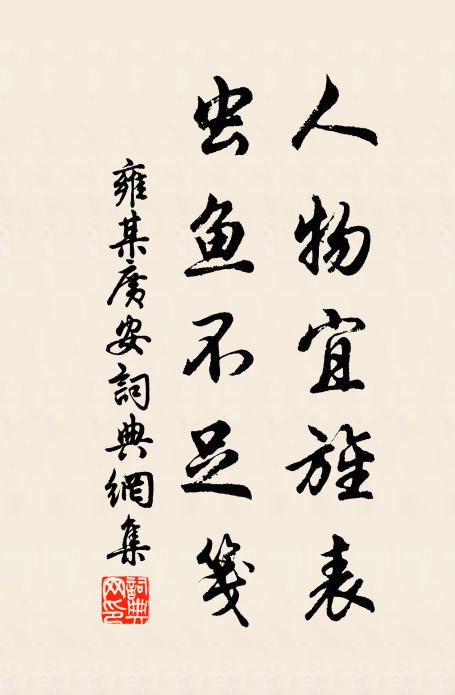 人物宜旌表
虫鱼不足笺
雍某廣安詞典網集
詞典网印